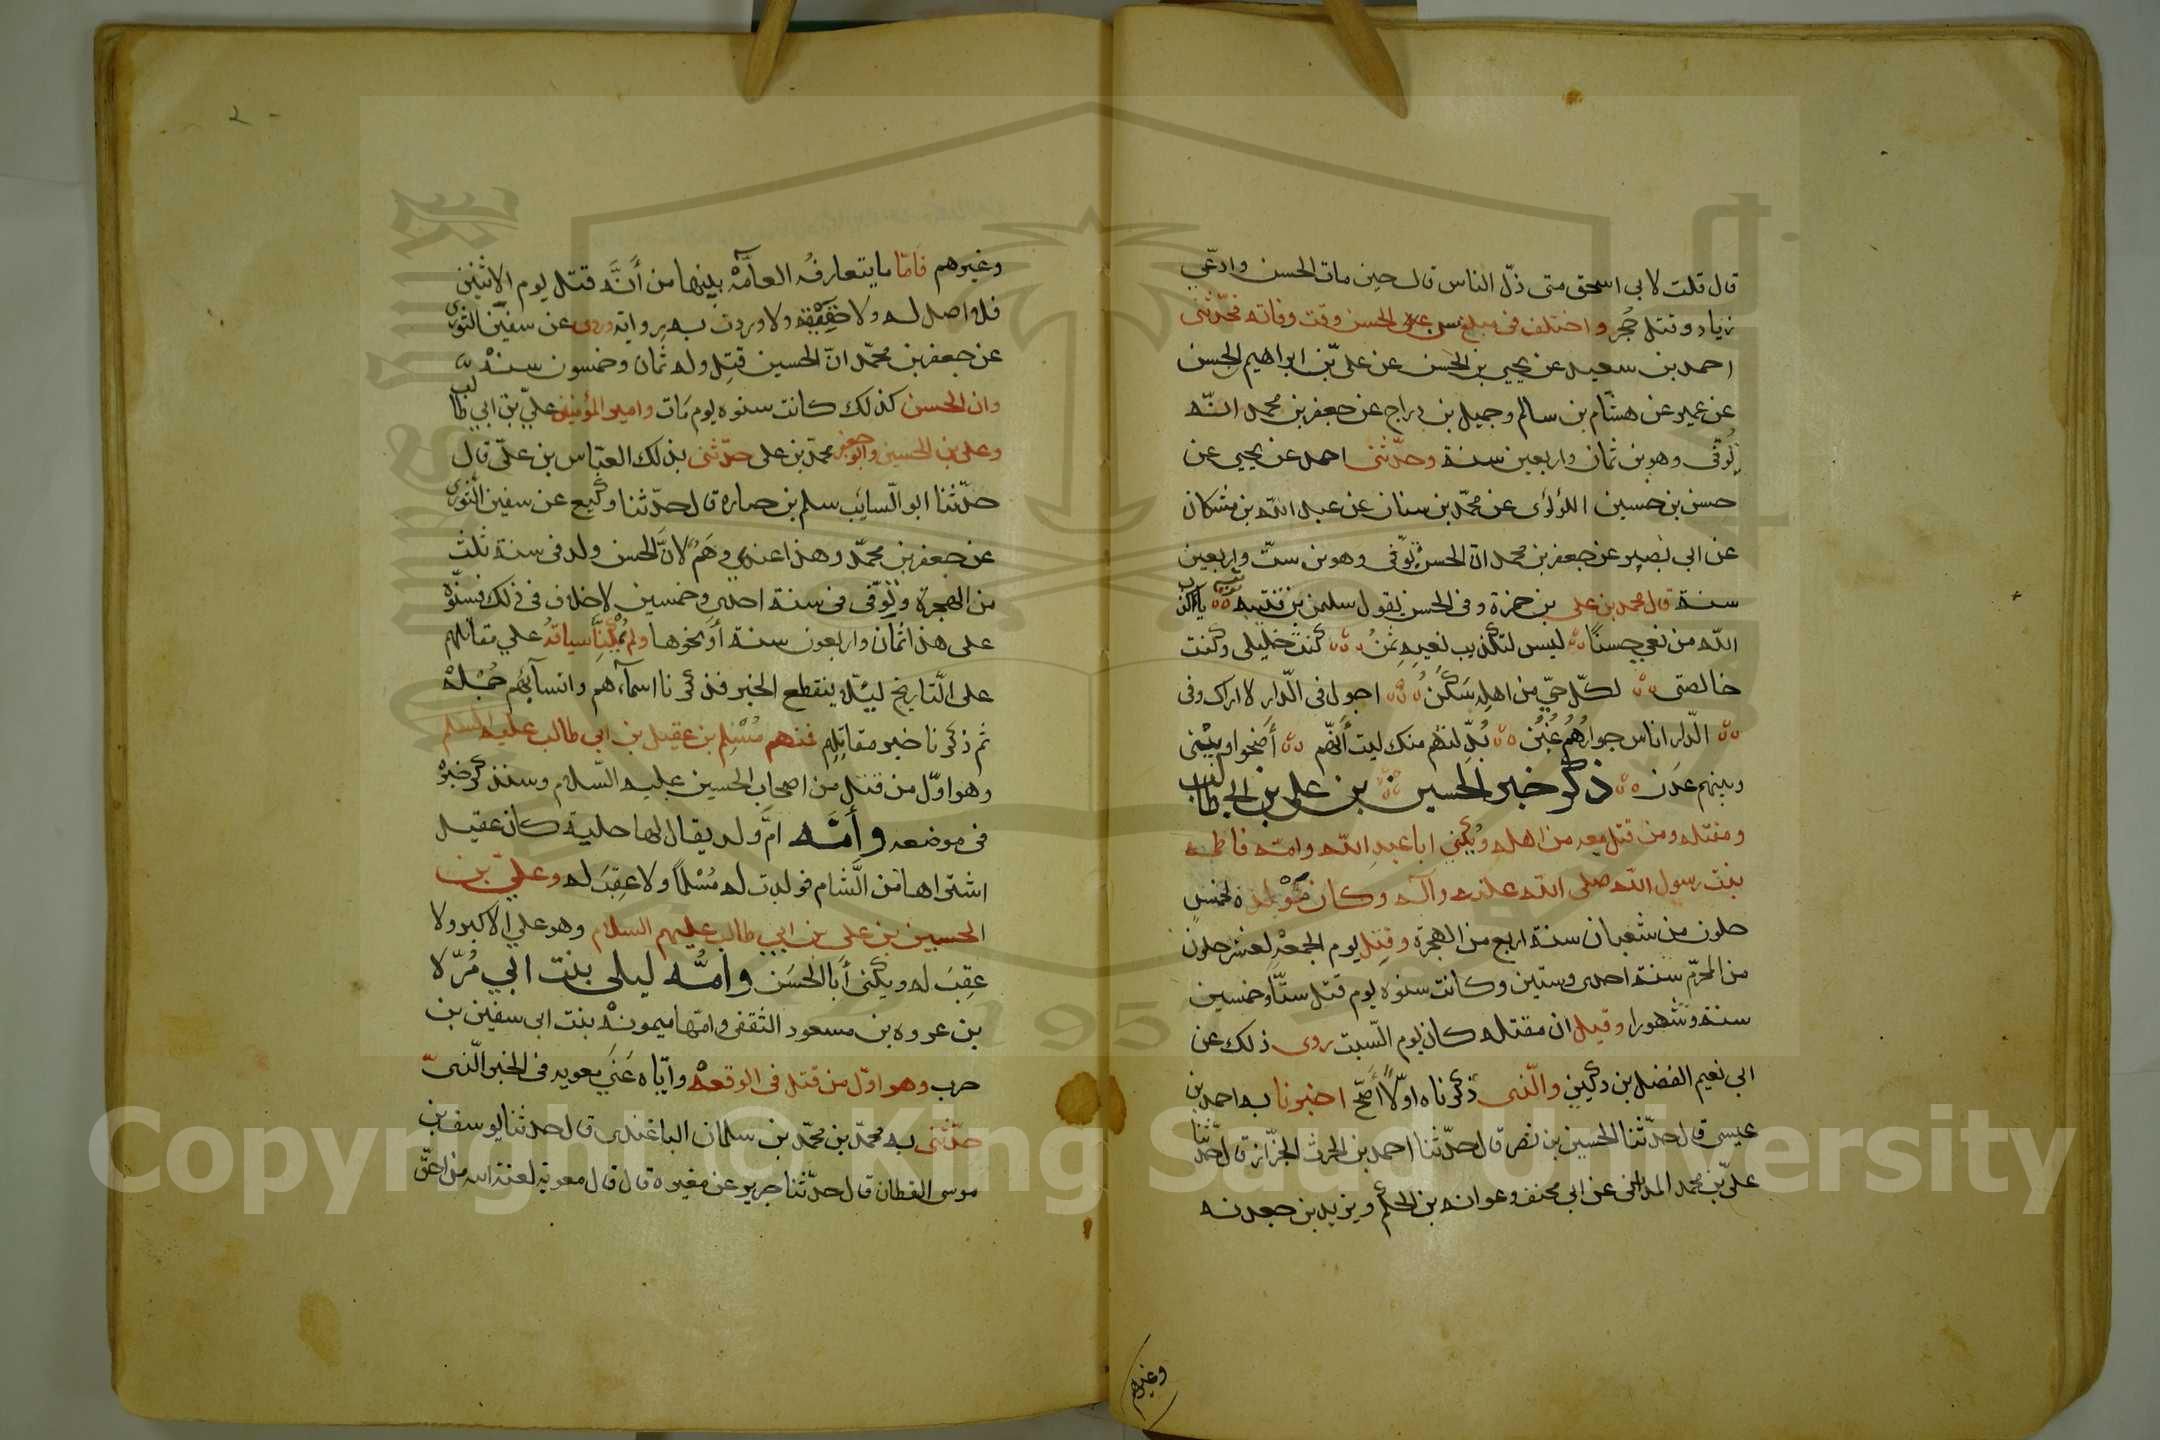 قال قلت لابي اسحق متى ذلّ الناس قال حين مات الحسن وادعّي
زياد وقتل حُجر واختلف في مبلغ سن الحسن وقت وفاته فحدّثني
احمد بن سعيد عن يحيى بن الحسن عن عليّ بن ابراهيم الحسن
عن عمير عن هشام بن سالم وجميل بن دراج عن جعفر بن محمد انّه
تُوفّى وهو بن ثمان واربعين سنة وحدّثني احمد عن يحيى عن
حسن بن حسين اللؤلؤى عن محمّد بن سنان عن عبد الله بن مشكان
عن ابي بصير عن جعفر بن محمد انّ الحسن توّفى وهو بن ستّ واربعين
سنة قال محمد بن علي بن حمزة وفى الحسن يقول سليمن بن قتيبه
الله من نعى حسنًا ليس لتكذيب نعيه ثمنُ كنت خليلى وكنت
خالصتى لكلّ حيّ من اهله سَكَنُ اجول فى الدّار لا اراك وفى
الدّار اناس جوارُهُم غُبُن بُدِّلتهم منك ليت أنّهم أضحوا وبيْنى
وبينهم عدن ذكر خبر الحسين بن على بن ابي طالب
ومقتله ومن قتل معه من اهله ويُكنى ابا عبد الله وامّه فاطمه
بنت رسول الله صلى الله عليه وآله وكان مَوْلده لخمس
خلون من شعبان سنة اربع من الهجرة وقتِل يوم الجمعة لعشر خلون
من المحرّم سنة احدى وستين وكانت سنوه يوم قتل ستًّا وخمسين
سنة وشهورا وقيل ان مقتله كان يوم السّبت روى ذلك عن
ابي نعيم الفضل بن دكين والّذى ذكرناه اولًا أصَحّ اخبرنا به احمد بن
عيسى قال حدّثنا الحسين بن نصر قال حدّثنا احمد بن الحرث الخزّاز قال حدّثنا
عليّ بن محمد المدائنى عن ابي مخنف وعوانه بن الحكم ويزيد بن جعدنه
وغيرهم
وغيرهم فَامّا ما يتعارفُه العامَّةُ بينها من أنَّه قتل يوم الاثنين
فلا اصل له ولا حقيقة ولا وردت به رواية وروى عن سفين الثورى
عن جعفر بن محمّد انّ الحسين قتِل وله ثمان وخمسون سنة
وان الحسن كذلك كانت سنوه يوم مات وامير المؤمنين عليّ بن ابي طالب
وعلى بن الحسين وابو جعفر محمّد بن على حدّثني بذلك العبّاس بن عليّ قال
حدّثنا ابو السايب سلم بن جناده قال حدّثنا وكيع عن سفين الثورى
عن جعفر بن محمّد وهذا عندي وَهَمٌ لانَّ الحسن ولد فى سنة ثلث
من الهجرة وتُوفّى فى سنة احدى وخمسين لا خلاف فى ذلك فسنوّه
على هذا ثمان واربعون سنة أو نحوها ولم سياقهُ على مقاتلهم
على التّاريخ ليلّا ينقطع الخبر فذكرنا اسمآءهم وانسآبهُم جُمْلةً
ثم ذكرنا خبر مقاتِلِهِم فمنهم مُسْلِم بن عقيل بن ابي طالب عليه السلم
وهو اوّل من قتل من اصحاب الحسين عليه السّلام وسنذكر خبره
فى موضعه وأمّه امّ ولد يقال لها حلية كان عقيل
اشتراها من الشَّام فولدت له مُسْلمًا ولا عقِبَ له وعليّ بن
الحسين بن على بن ابي طالب عليهم السلام وهو علي الاكبر ولا
عقِبَ له ويكنى أبا الحسَن وامُّه ليلى بنت ابي مُرّ لا
بن عروه بن مسعود الثقفى وامّها ميمونه بنت ابى سفين بن
حرب وهو اوّل من قتل فى الوقعه وايّاه عَنَي معويه فى الخبر الّذى
حدّثنى به محمّد بن محمّد بن سلمان الباغندى قال حدثنا يوسف بن
موسى القطان قال حدّثنا جرير عن مغيرة قال قال معوية لعنة الله من احقّ
Copyright © King Saud University
1957